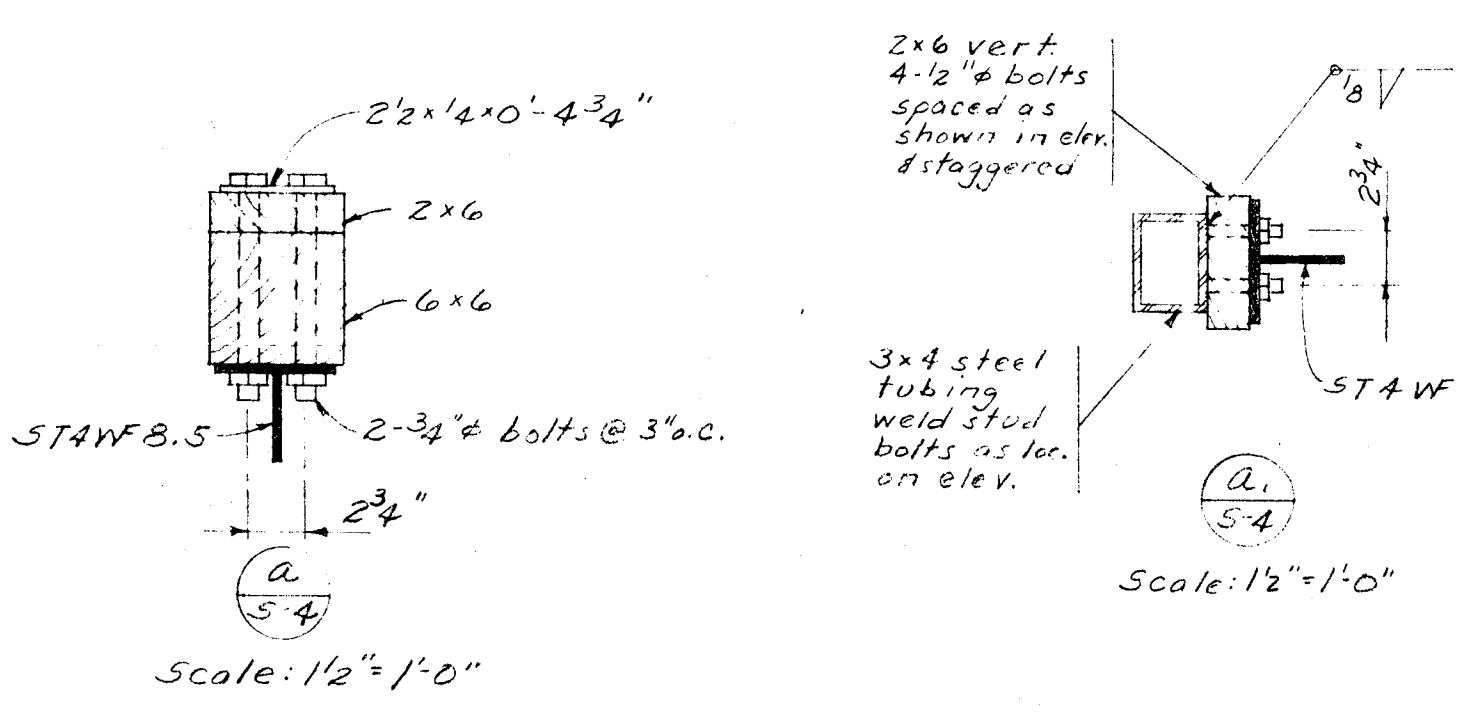 2½×¼×0'-4¾"
2×6
6×6
ST4WF8.5
2-¾"ϕ bolts @ 3"o.c.
2¾"
a
S-4
Scale: 1½"=1'-0"
2×6 vert.
4-½"ϕ bolts
spaced as
shown in elev.
& staggered
⅛
2¾"
3×4 steel
tubing
weld stud
bolts as loc.
on elev.
ST4WF
a1
S-4
Scale: 1½"=1'-0"